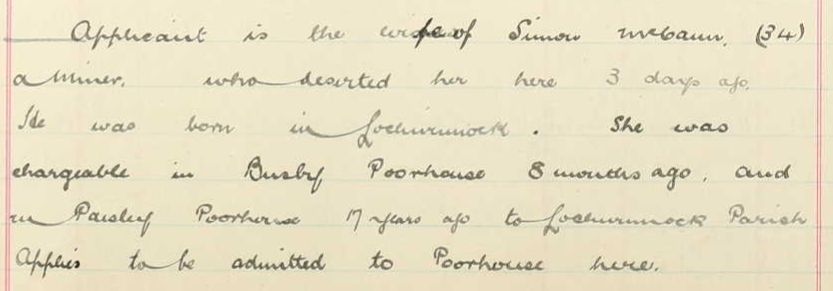 Applicant is the wife of Simon McCann, (34)
a Miner, who deserted her here 3 days ago.
He was born in Lochwinnoch. She was
chargeable in Busby Poorhouse 8 months ago, and
in Paisley Poorhouse 17 years ago to Lochwinnoch Parish
Applies to be admitted to Poorhouse here.